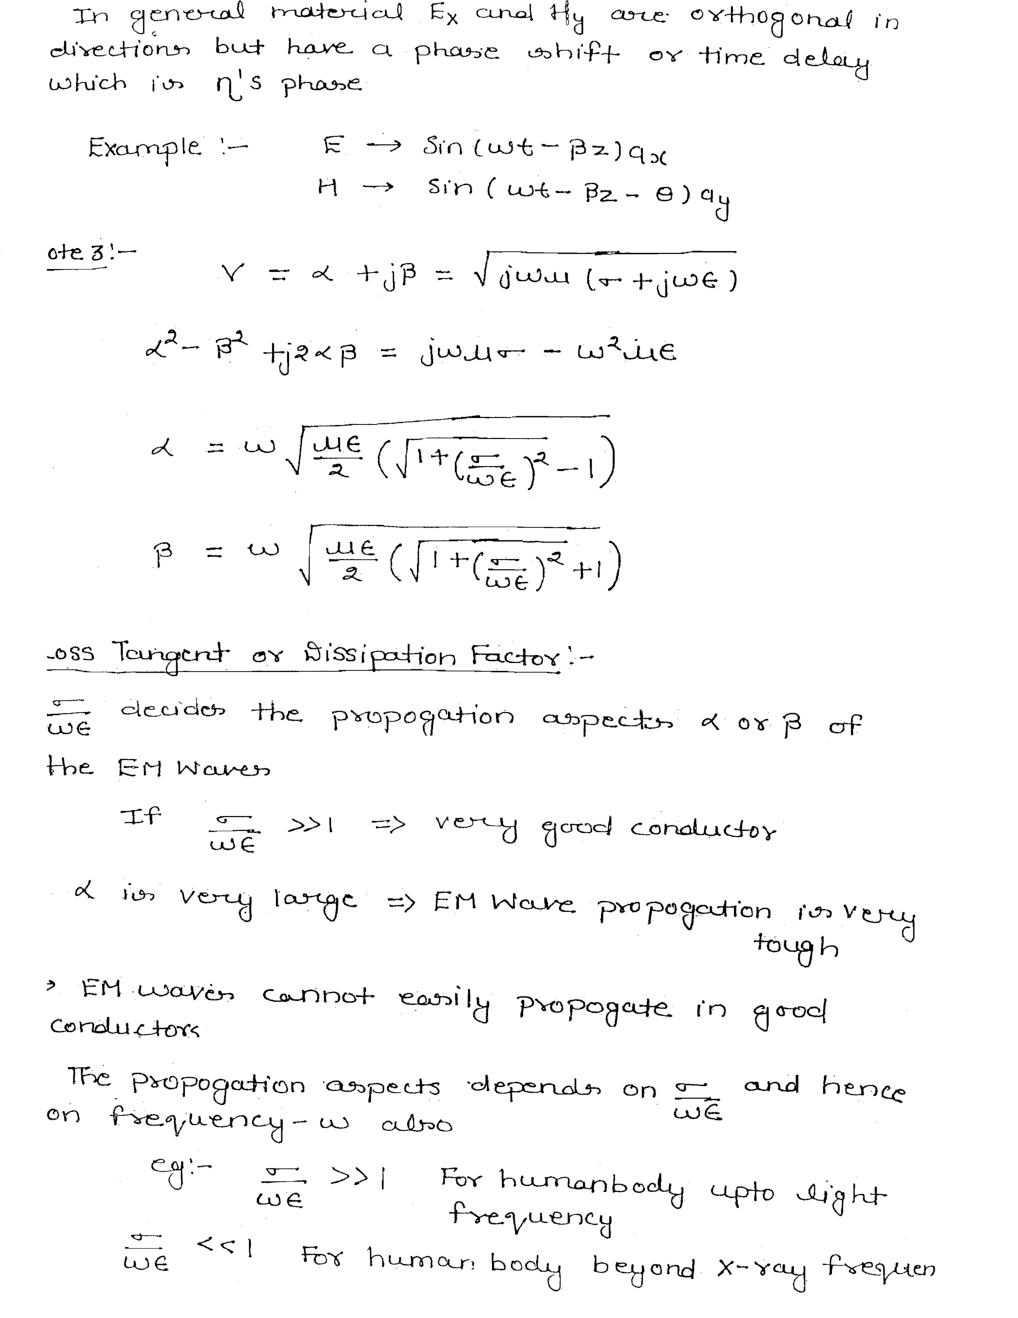 In general material Ex and Hy are orthogonal in
directions but have a phase shift or time delay
which is η's phase
Example :- E → Sin (ωt - βz) ax
H → Sin (ωt - βz - θ) ay
ote 3 :-
γ = α + jβ = √(jωμ (σ + jωϵ))
α² - β² + j2αβ = jωμσ - ω²μϵ
α = ω √(μϵ/2 (√(1 + (σ/ωϵ)²) - 1))
β = ω √(μϵ/2 (√(1 + (σ/ωϵ)²) + 1))
oss Tangent or Dissipation Factor :-
σ/ωϵ decides the propogation aspects α or β of
the EM Waves
If σ/ωϵ >>1 => very good conductor
α is very large => EM Wave propogation is very
tough
> EM waves cannot easily propogate in good
conductors
The propogation aspects depends on σ/ωϵ and hence
on frequency - ω also
eg:- σ/ωϵ >>1 For humanbody upto light
frequency
σ/ωϵ <<1 For human body beyond X-ray frequen